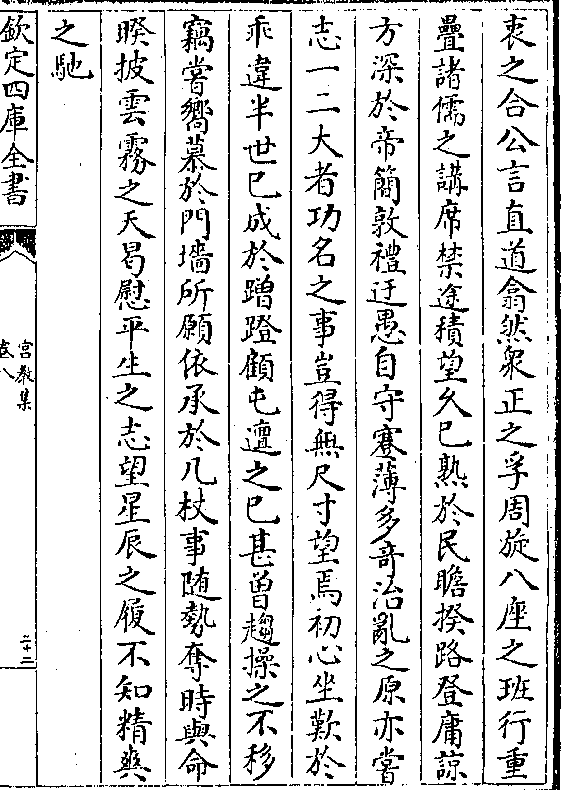 衷之合公言直道翕然衆正之孚周旋八座之班行重
疊諸儒之講席禁途積望久已熟於民瞻揆路登庸諒
方深於帝簡敦禮迂愚自守蹇薄多奇治亂之原亦嘗
志一二大者功名之事豈得無尺寸望焉初心坐歎於
乖違半世已成於蹭蹬顧屯邅之已甚曽趨操之不移
竊嘗嚮慕於門墻所願依承於几杖事随勢奪時與命
暌披雲霧之天曷慰平生之志望星辰之履不知精爽
之馳
欽定四庫全書
宫教集
卷八
二十二